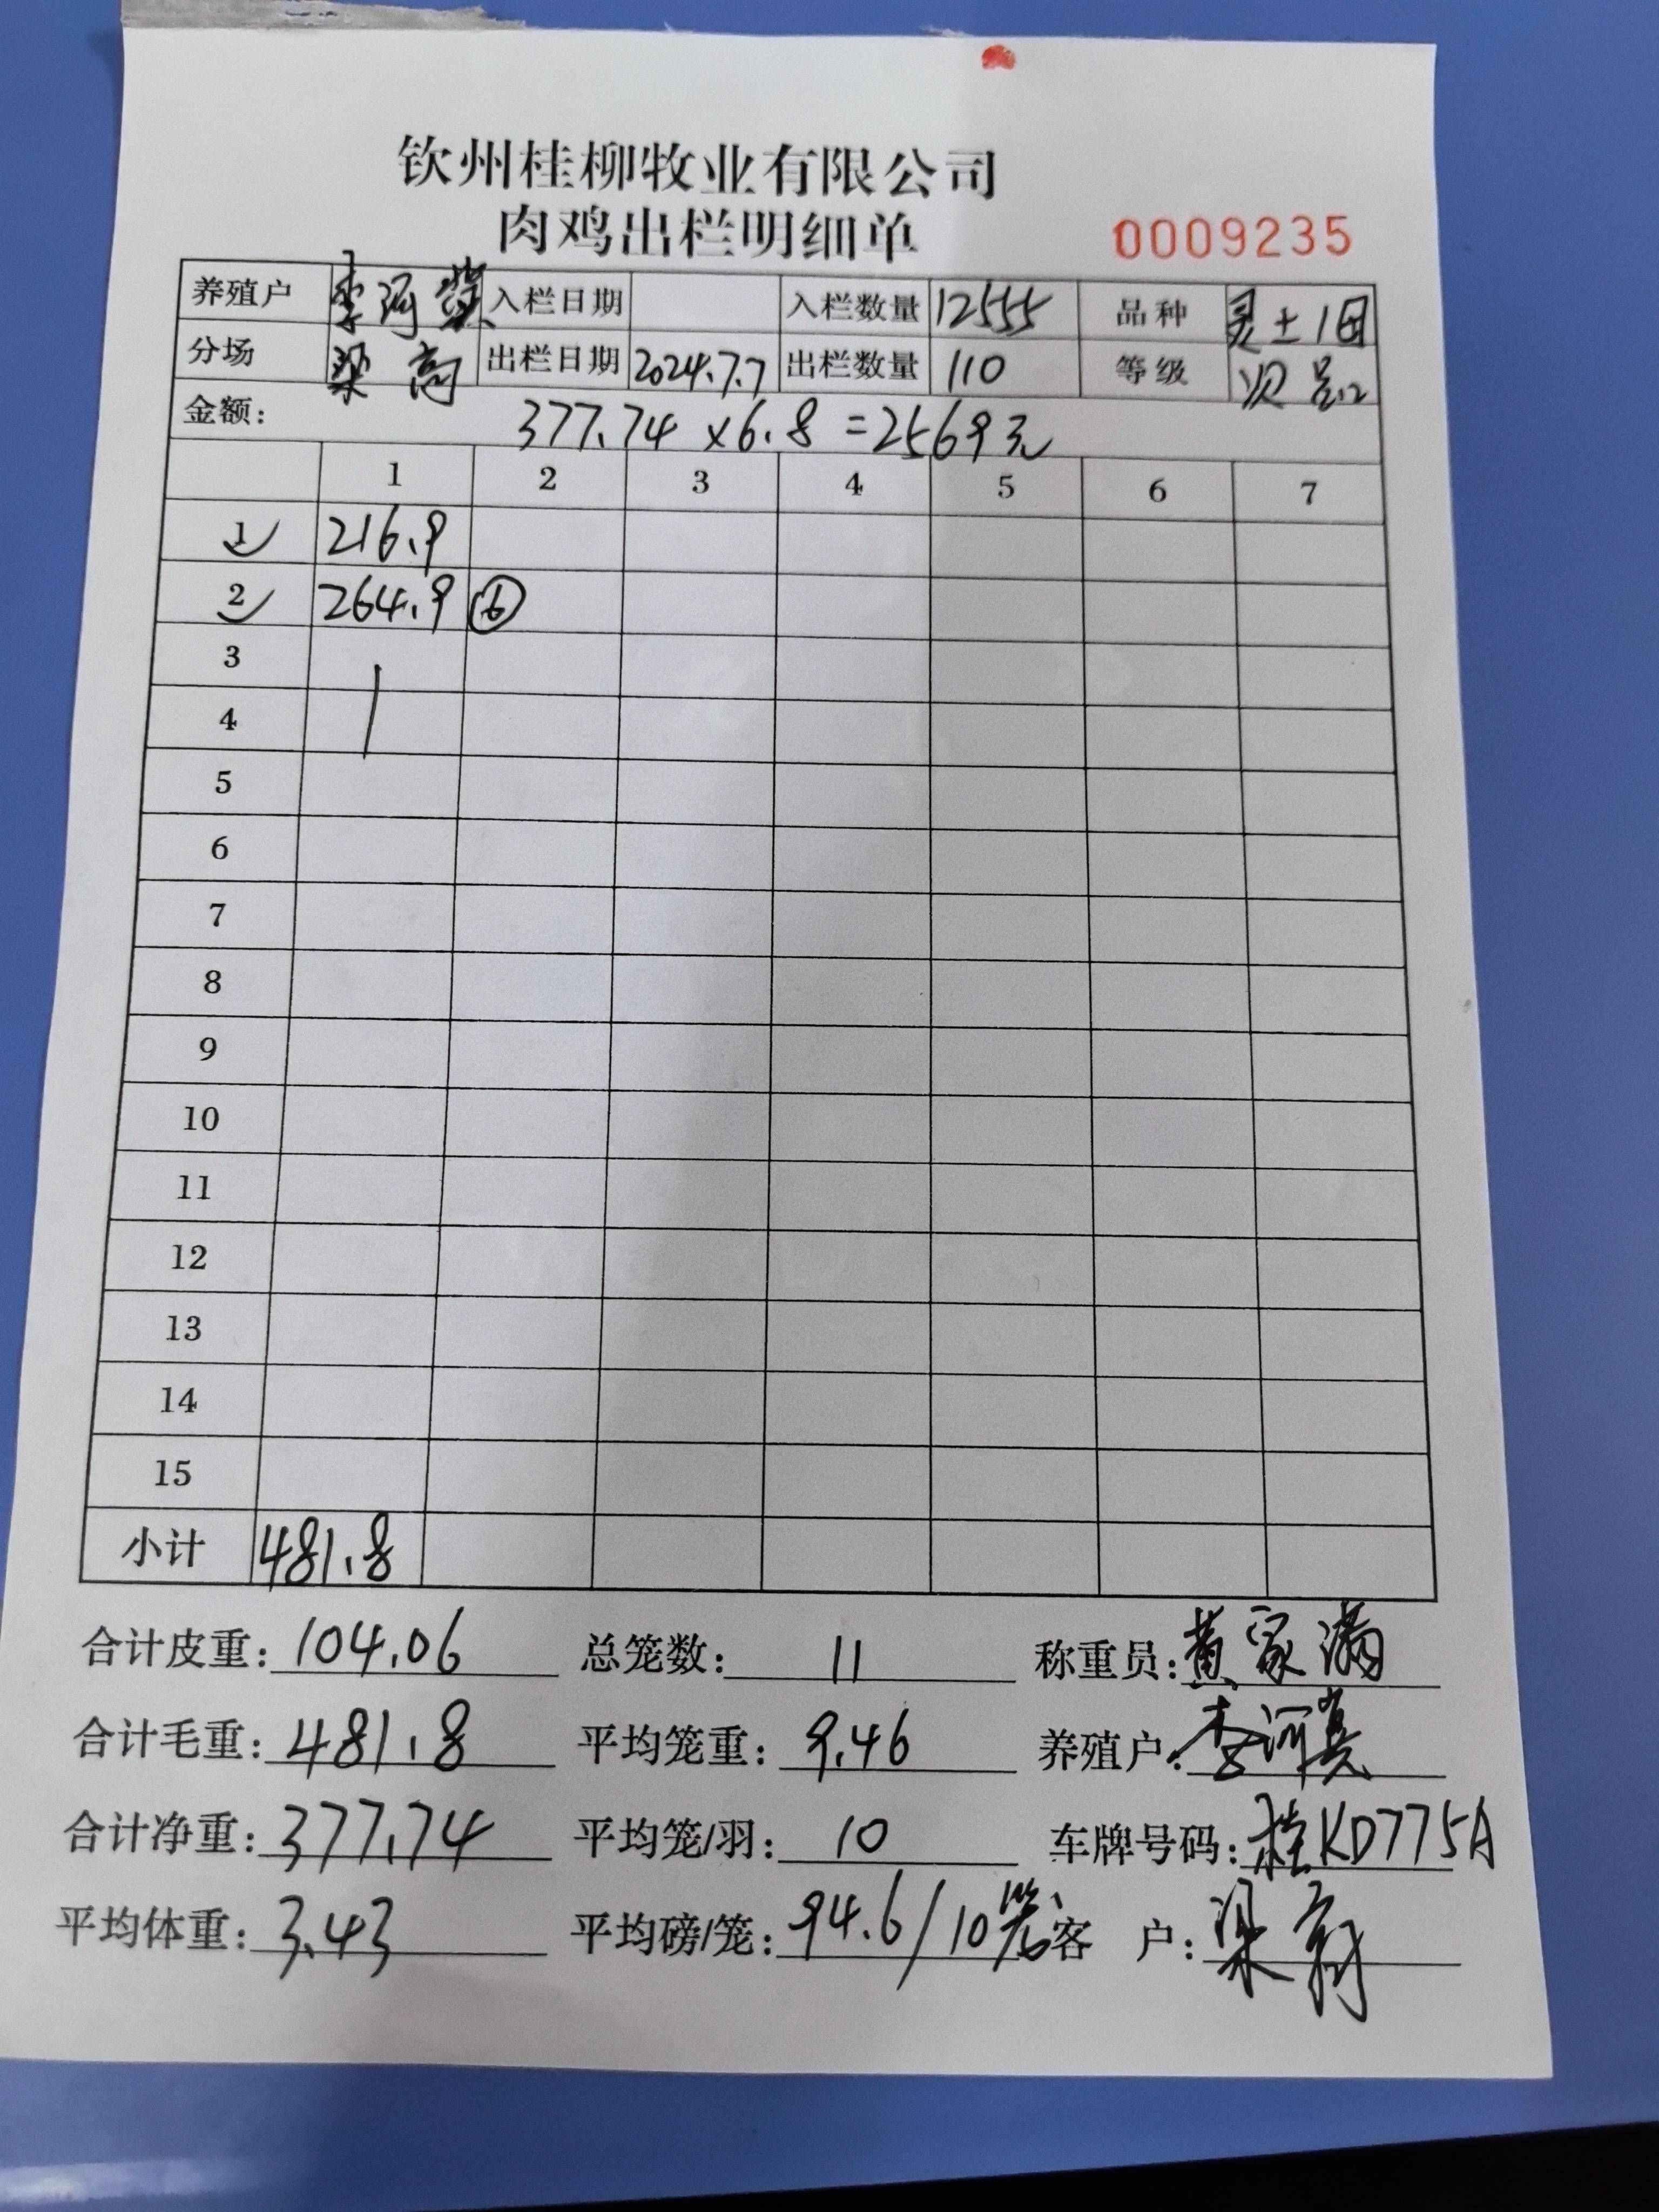 钦州桂柳牧业有限公司
肉鸡出栏明细单 0009235
养殖户 李河 入栏日期 入栏数量 12555 品种 灵土1号
分场 梁高 出栏日期 2024.7.7 出栏数量 110 等级 次品
金额: 377.74 x6.8 =2569元
1 2 3 4 5 6 7
1 216.9
2 264.9 ⑥
3
4
5
6
7
8
9
10
11
12
13
14
15
小计 481.8
合计皮重: 104.06 总笼数: 11 称重员: 黄家满
合计毛重: 481.8 平均笼重: 9.46 养殖户: 李河
合计净重: 377.74 平均笼/羽: 10 车牌号码: 桂KD775A
平均体重: 3.43 平均磅/笼: 94.6/10笼 客 户: 梁